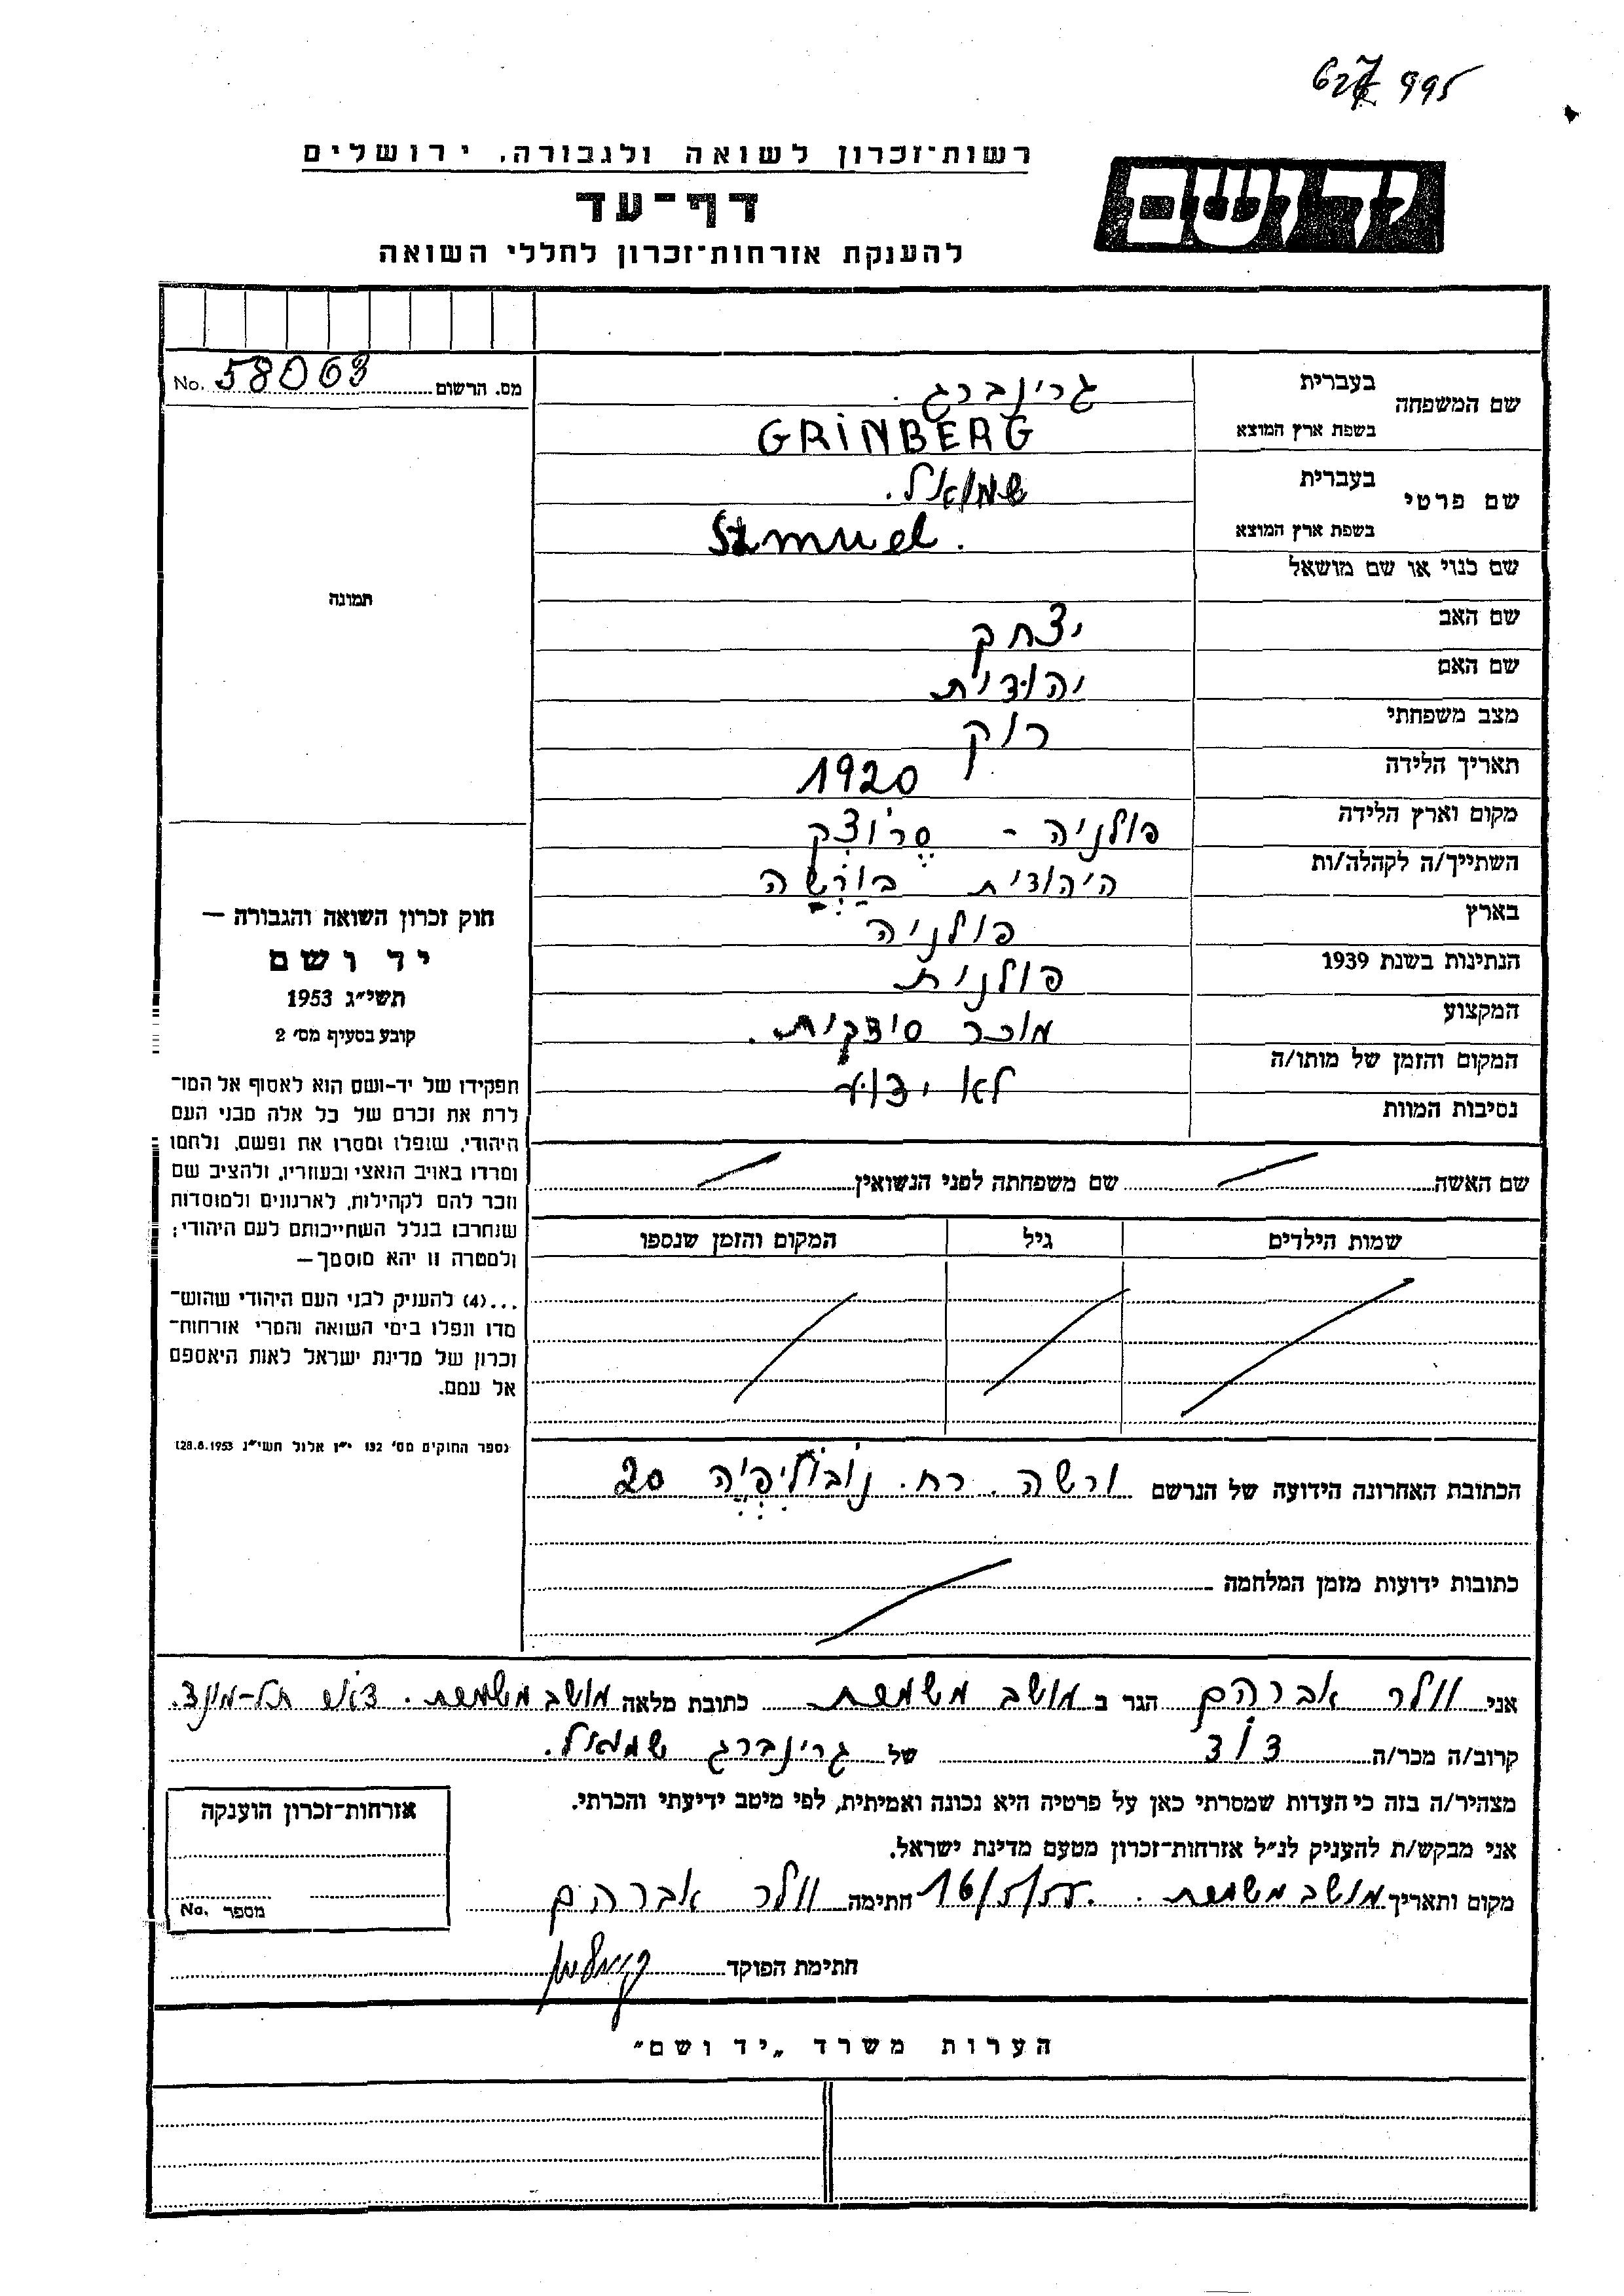 627 995
רשות־זכרון לשואה ולגבורה, ירושלים
יד ושם
דף־עד
להענקת אזרחות־זכרון לחללי השואה
מס. הרשום No. 58063
שם המשפחה בעברית גרינברג.
בשפת ארץ המוצא GRINBERG
שם פרטי בעברית שמואל.
בשפת ארץ המוצא Szmuel.
שם כנוי או שם מושאל
שם האב יצחק
שם האם יהודית
מצב משפחתי רוק
תאריך הלידה 1920
מקום וארץ הלידה פולניה - סרוצק
השתייך/ה לקהלה/ות היהודית בורשה
בארץ פולניה
הנתינות בשנת 1939 פולנית
המקצוע מוכר סידקית.
המקום והזמן של מותו/ה לא ידוע
נסיבות המוות
תמונה
חוק זכרון השואה והגבורה —
יד ושם
תשי״ג 1953
קובע בסעיף מס׳ 2
תפקידו של יד-ושם הוא לאסוף אל המו־
לדת את זכרם של כל אלה מבני העם
היהודי, שנפלו ומסרו את נפשם, נלחמו
ומרדו באויב הנאצי ובעוזריו, ולהציב שם
וזכר להם לקהילות, לארגונים ולמוסדות
שנחרבו בגלל השתייכותם לעם היהודי;
ולמטרה זו יהא מוסמך—
...(4) להעניק לבני העם היהודי שהוש־
מדו ונפלו בימי השואה והמרי אזרחות־
זכרון של מדינת ישראל לאות היאספם
אל עמם.
(ספר החוקים מס׳ 132 י״ז אלול תשי״ג 28.8.1953)
שם האשה שם משפחתה לפני הנשואין
שמות הילדים גיל המקום והזמן שנספו
הכתובת האחרונה הידועה של הנרשם ורשה. רח. נובוליפיה 20
כתובות ידועות מזמן המלחמה
אני וולר אברהם הגר ב מושב משמרת כתובת מלאה מושב משמרת. דאר תל-מונד.
קרוב/ה מכר/ה דוד של גרינברג שמואל.
מצהיר/ה בזה כי העדות שמסרתי כאן על פרטיה היא נכונה ואמיתית, לפי מיטב ידיעתי והכרתי.
אני מבקש/ת להעניק לנ״ל אזרחות־זכרון מטעם מדינת ישראל.
מקום ותאריך מושב משמרת. חתימה וולר אברהם
חתימת הפוקד
אזרחות־זכרון הוענקה
מספר No.
הערות משרד „יד ושם״